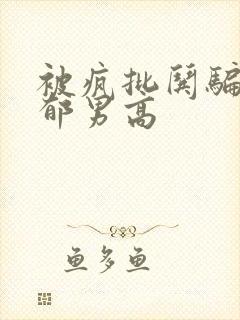 被疯批缪骗
郁男高
鱼多鱼